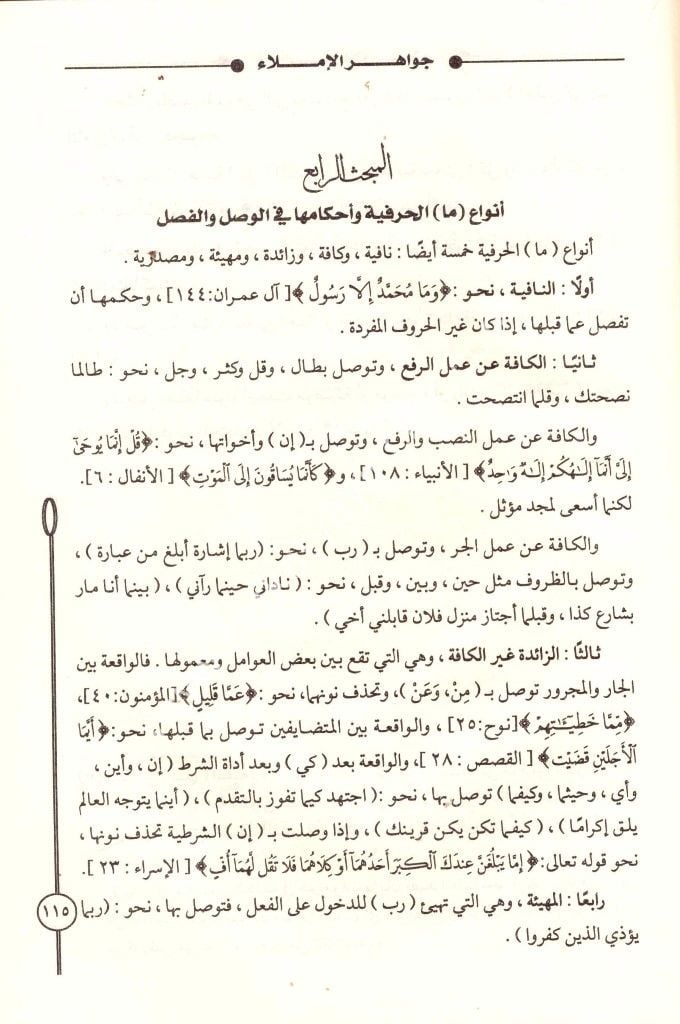 جواهر الإملاء
المبحث الرابع
أنواع (ما) الحرفية وأحكامها في الوصل والفصل
أنواع ( ما ) الحرفية خمسة أيضًا : نافية ، وكافة ، وزائدة ، ومهيئة ، ومصدرية .
أولًا : النافية ، نحو : ﴿وَمَا مُحَمَّدٌ إِلَّا رَسُولٌ﴾ [ آل عمران:١٤٤] ، وحكمها أن
تفصل عما قبلها ، إذا كان غير الحروف المفردة .
ثانيًا : الكافة عن عمل الرفع ، وتوصل بطال ، وقل وكثر ، وجل ، نحو : طالما
نصحتك ، وقلما انتصحت .
والكافة عن عمل النصب والرفع ، وتوصل بـ( إن ) وأخواتها ، نحو : ﴿قُلْ إِنَّمَا يُوحَىٰ
إِلَيَّ أَنَّمَا إِلَٰهُكُمْ إِلَٰهٌ وَاحِدٌ﴾ [ الأنبياء : ١٠٨ ] ، و﴿كَأَنَّمَا يُسَاقُونَ إِلَى الْمَوْتِ﴾ [ الأنفال : ٦].
لكنما أسعى لمجد مؤثل .
والكافة عن عمل الجر ، وتوصل بـ ( رب ) ، نحو : (ربما إشارة أبلغ من عبارة ) ،
وتوصل بالظروف مثل حين ، وبين ، وقبل ، نحو : ( ناداني حينما رآني ) ، ( بينما أنا مار
بشارع كذا ، وقبلما أجتاز منزل فلان قابلني أخي ) .
ثالثًا : الزائدة غير الكافة ، وهي التي تقع بين بعض العوامل ومعمولها . فالواقعة بين
الجار والمجرور توصل بـ ( مِنْ، وَعَنْ ) ، وتحذف نونهما، نحو : ﴿عَمَّا قَلِيلٍ﴾ [المؤمنون:٤٠]،
﴿مِّمَّا خَطِيئَاتِهِمْ﴾ [نوح:٢٥] ، والواقعة بين المتضايفين توصل بما قبلها، نحو: ﴿أَيَّمَا
الْأَجَلَيْنِ قَضَيْتُ﴾ [ القصص : ٢٨ ]، والواقعة بعد ( كي ) وبعد أداة الشرط ( إن ، وأين ،
وأي ، وحيثما ، وكيفما ) توصل بها ، نحو : ( اجتهد كيما تفوز بالتقدم ) ، ( أينما يتوجه العالم
يلق إكرامًا ) ، ( كيفما تكن يكن قرينك ) ، وإذا وصلت بـ ( إن ) الشرطية تحذف نونها ،
نحو قوله تعالى: ﴿إِمَّا يَبْلُغَنَّ عِندَكَ الْكِبَرَ أَحَدُهُمَا أَوْ كِلَاهُمَا فَلَا تَقُل لَّهُمَا أُفٍّ﴾ [ الإسراء : ٢٣ ].
رابعًا : المهيئة ، وهي التي تهيئ ( رب ) للدخول على الفعل ، فتوصل بها ، نحو : (ربما
يؤذي الذين كفروا ) .
١١٥